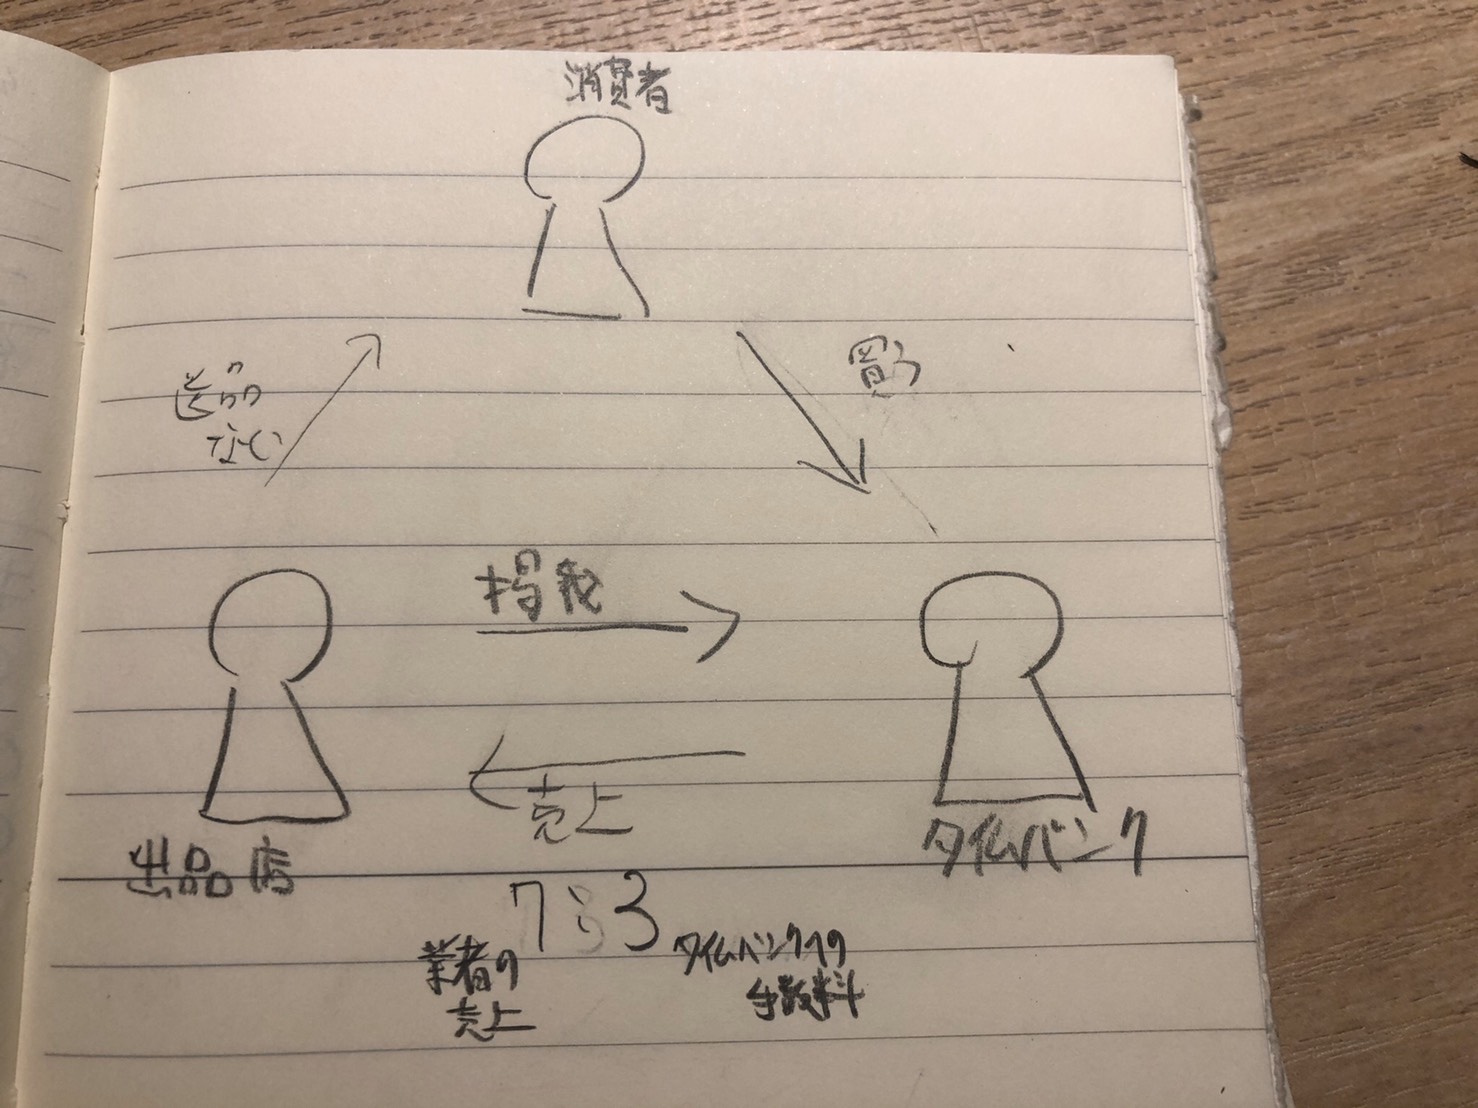 消費者
買う
掲載
売上
出品店
タイムバンク
7:3
業者の
売上
タイムバンクへの
手数料